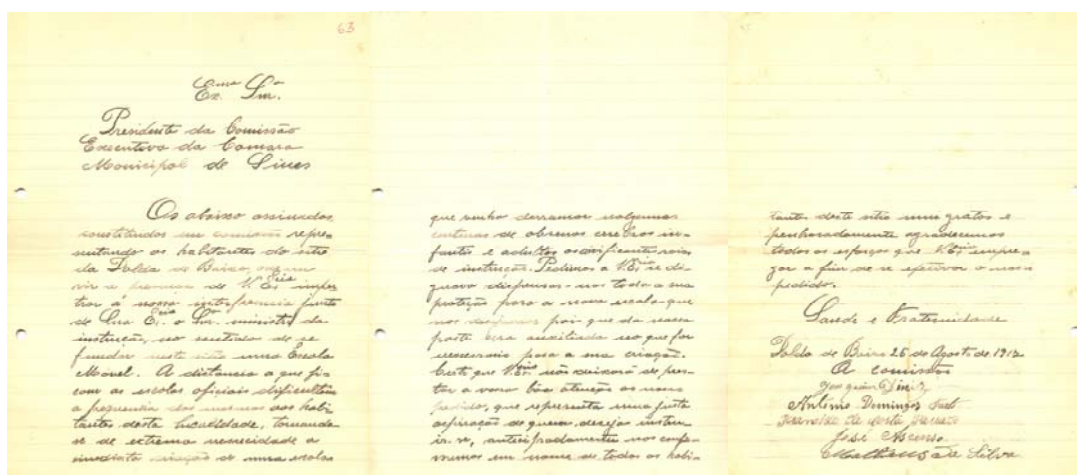 63
Exmo Snr.
Presidente da Comissão
Executiva da Camara
Municipal de Sines
Os abaixo assinados,
constituidos em comissão repre-
sentando os habitantes do sitio
da Dolda de Baixo, ousam
vir á presença de V. Excia impe-
trar á nossa interferencia junto
de Sua Excia o Snr. ministro da
instrução, no sentido de se
fundar neste sitio uma Escola
Movel. A distancia a que fi-
cam as escolas oficiais dificultam
a frequencia das mesmas aos habi-
tantes desta localidade, tornando
se de extrema necessidade a
imediata criação de uma escola
que venha derramar nalgumas
centenas de obscuros cerebros in-
fantis e adultos os raios
de instrução. Pedimos a V. Excia se di-
gne dispensar-nos toda a sua
proteção para a nossa escola que
nos por que da nossa
parte será auxiliada no que for
necessario para a sua criação.
Certos que V. Excia não deixará de pres-
tar a vossa bôa atenção ao nosso
pedido, que representa uma justa
aspiração de quem deseja instru
ir-se, antecipadamente nos confe-
ssamos em nome de todos os habi-
tantes deste sitio muito gratos e
penhoradamente agradecemos
todos os esforços que V. Excia empre-
gar a fim de se efetivar o nosso
pedido.
Saude e Fraternidade
Dolda de Baixo 26 de Agosto de 1912
A comissão
Joaquim Diniz
António Domingos
da Costa
José Ascenso
Matheus da Silva